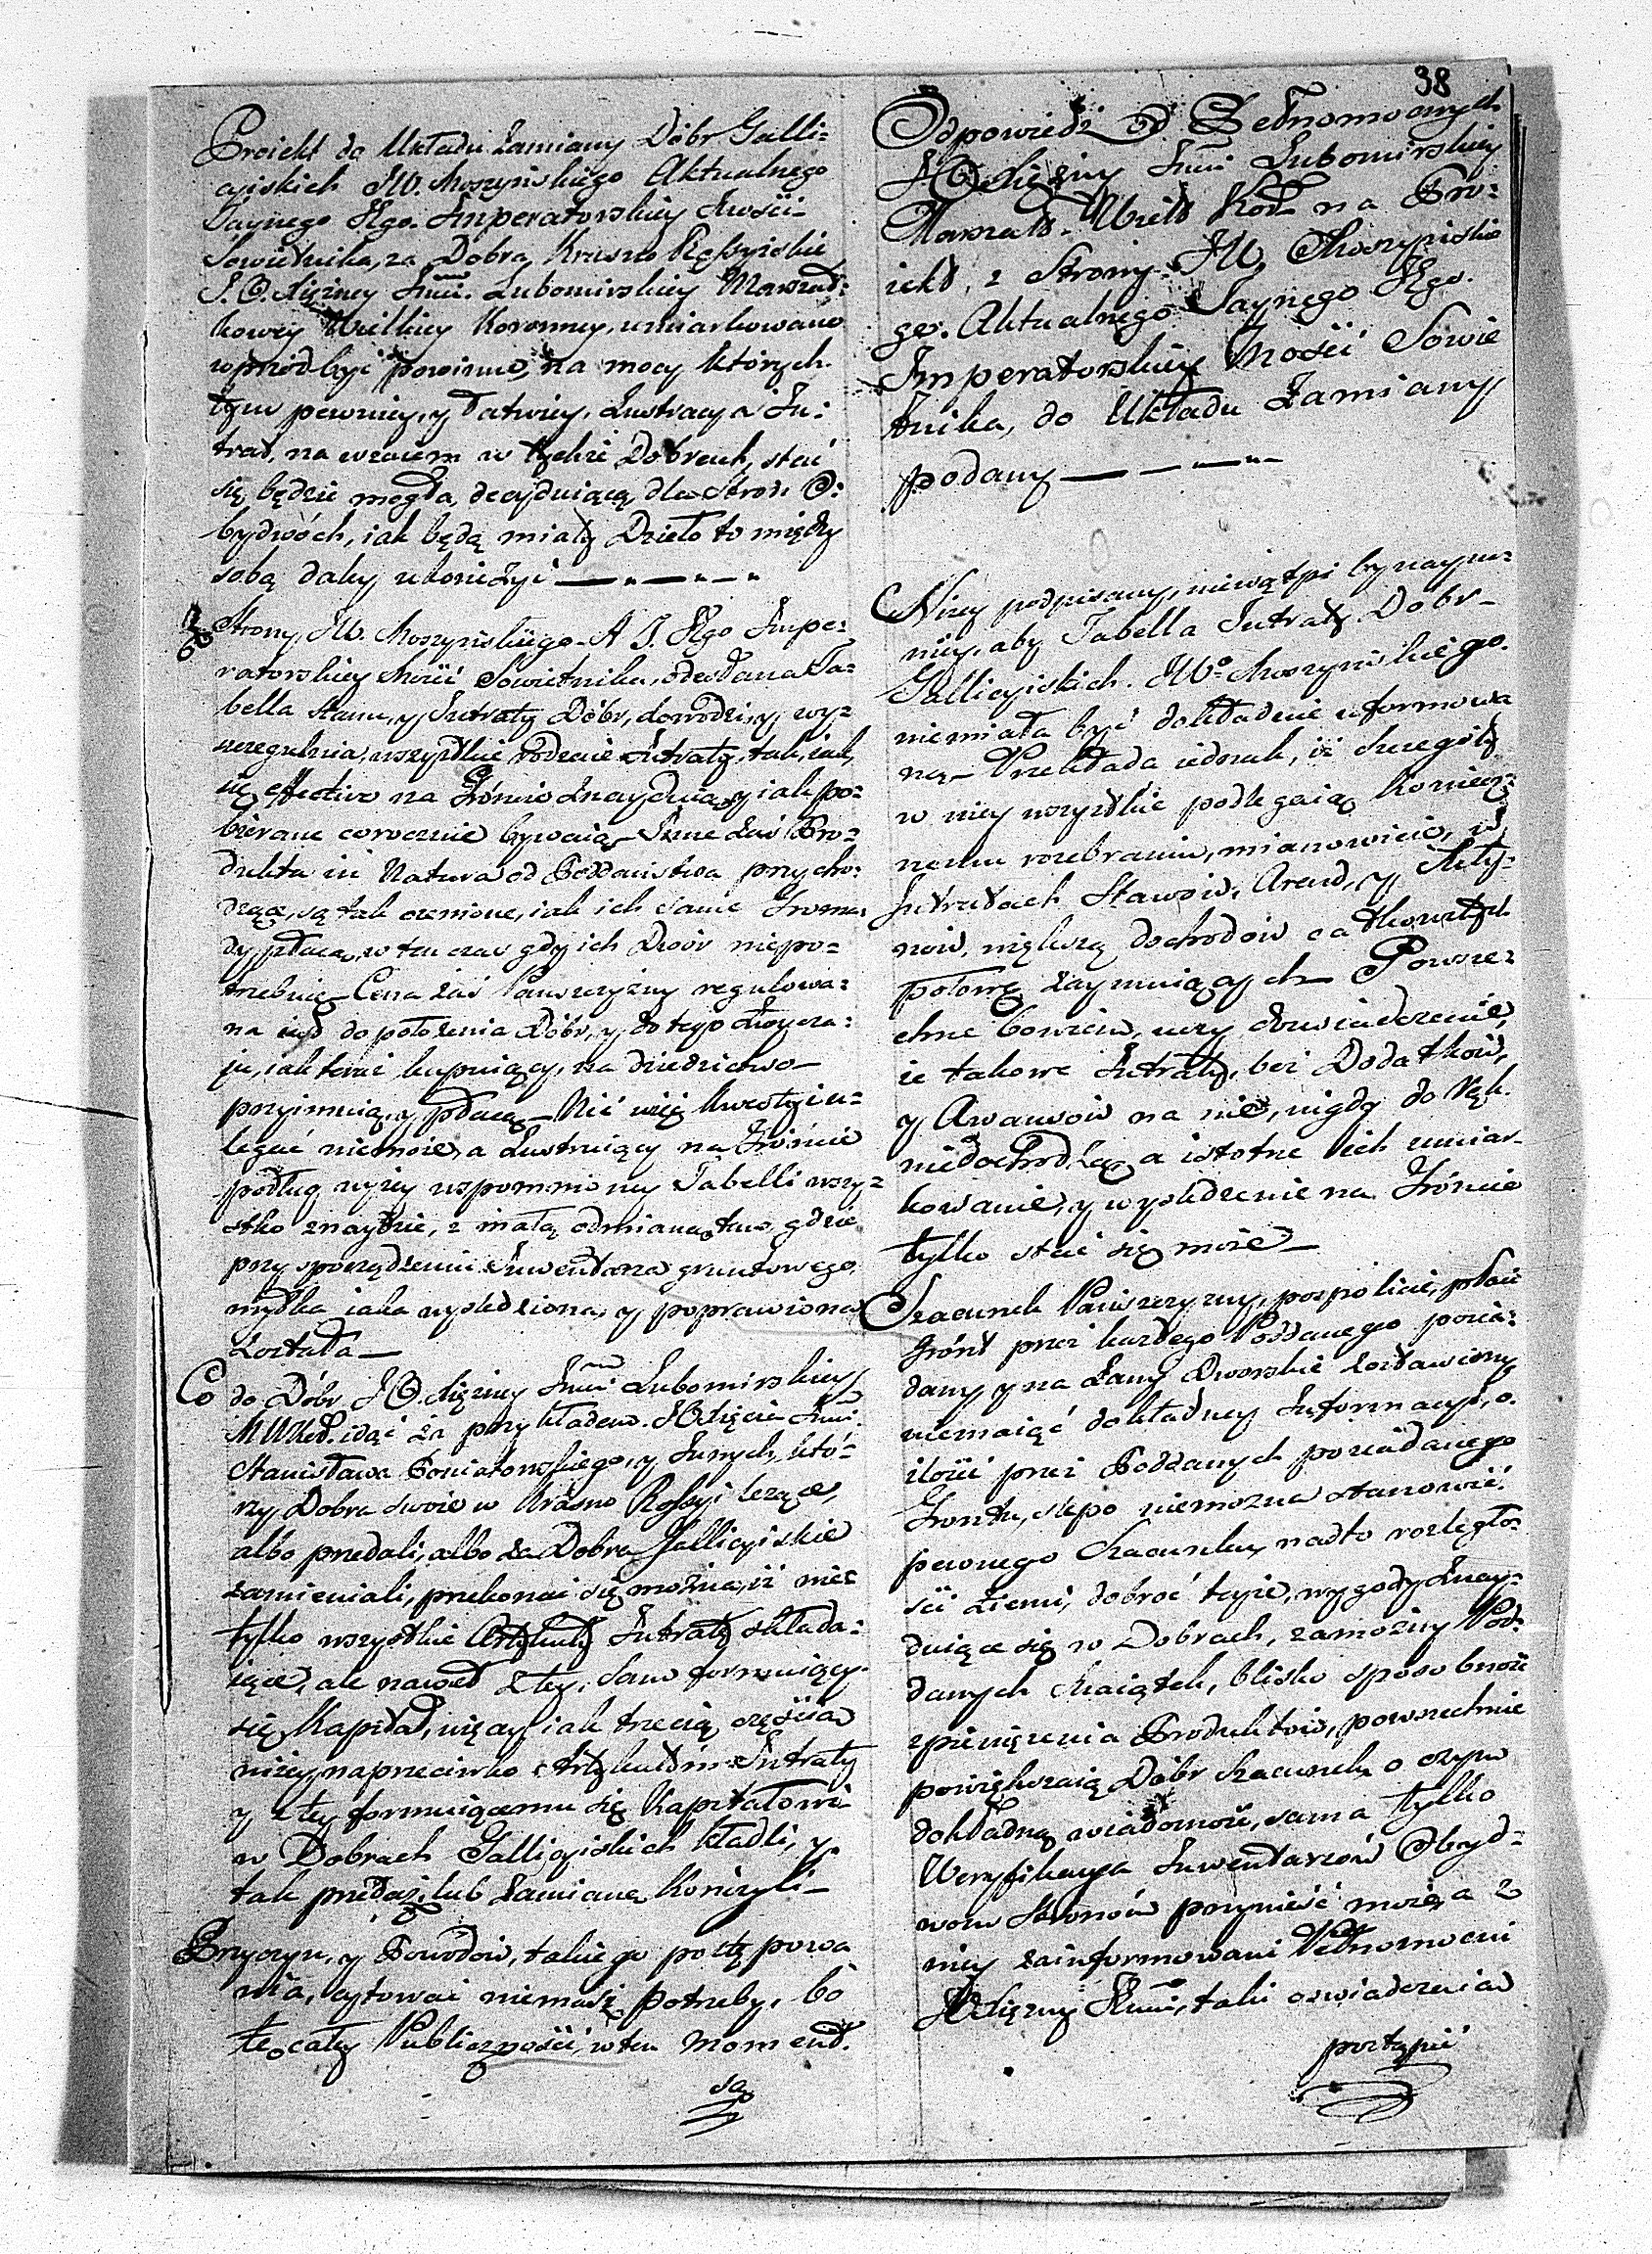 38
Proiekt do Układu Zamiany Dóbr Galli=
cyiskich JW. Moszyńskiego Aktualnego
Taynego JEgo. Imperatorskiey Mości
Sowietnika, za Dobra Krasno Rossyiskie
J. O. Xiężney Jmci. Lubomirskiey Marszał=
kowey Wielkiey Koronney, umiarkowane
wprzód być powinno, na mocy których
tym pewniey, y łatwiey, Lustracya In=
trat, na wzaiem w tychże Dobrach, stać
się będzie mogła, decyduiącą dla Stron O=
bydwóch, iak będą miały Dzieło to między
sobą daley ukończyć
Ze Strony JW. Moszyńskiego A. T. JEgo Impe=
ratorskiey Mości Sowietnika, oddana Ta=
bella Stanu, y Intraty Dóbr, dowodzi, y wy=
szczegulnia, wszystkie rodzaie Intraty, tak, iak
się effective na Gróncie znayduią, y iak po=
bierane corocznie bywaią. Inne zaś Pro=
dukta in Natura od Poddaństwa przycho=
dzące, są tak cenione, iak ich same Groma=
dy płacą, w ten czas gdy ich Dwór niepo=
trzebuie. Cena zaś Pańszczyzny regulowa=
na iest do położenia Dóbr, y do tego zwycza=
ju, iak teraz kupuiący, na dziedzictwo
przyimuią, y płacą. Nic więc kwestyi u=
legać niemoże, a Lustruiący na Gróncie
podług wyżey wspomnioney Tabelli wszy=
stko znaydzie, z małą odmianą, tam, gdzie
przy sporządzeniu Inwentarza gruntowego,
myłka iaka wyśledzioną, y poprawioną
Została
Co do Dóbr J O. Xiężney Jmci Lubomirskiey
M W Kor. idąc za przykładem J O Xięcia Jmci.
Stanisława Poniatowskiego, y Innych, któ=
rzy Dobra swoie w Krasno Rossyi leżące,
albo przedali, albo za Dobra Gallicyiskie
zamieniali, przekonać się można, iż nie=
tylko wszystkie Artykuły Intratę składa=
iące, ale nawet z tey, Sam formuiący
się Kapitał, więcey iak trzecią częścią
niżey naprzeciwko Artykułom Intraty
y z tey formuiącemu się Kapitałowi
w Dobrach Gallicyiskich kładli, y
tak przedaż, lub Zamianę kończyli
Przyczyn, y Powodów, takiego postępowa
nia, cytować niemasz potrzeby, bo
te całey Publiczności, w ten moment
są
Odpowiedź Od Pełnomocnych
J O Xiężny Jmci Lubomirskiey
Marszałk. Wielk Kor na Pro=
iekt, z Strony JW Moszyńskie
go. Aktualnego Taynego JEgo.
Imperatorskiey Mości Sowie
tnika, do Układu Zamiany
podany
Niżey podpisany, niewątpi bynaym=
niey, aby Tabella Intraty Dobr
Gallicyiskich. JWo Moszyńskiego.
niemiała być dokładnie uformowa
ną. Przekłada iednak, iż Szczegóły
w niey wszystkie podlegaią koniecz=
nemu rozebraniu, mianowicie, w
Intratach Stawów, Arend, y Mły=
nów, większą dochodów całkowitych
połowę zaymuiących. Powsze=
chne bowiem, uczy doświadczenie,
że takowe Intraty, bez Dodatków,
y Awansów na nie, nigdy do Rąk
niedochodzą, a istotne ich umiar=
kowanie, y wyśledzenie na Gróncie
tylko stać się może
Szacunek Pańszczyzny, pospolicie, płaci
Grónt przez każdego Poddanego posia=
dany, y na Łany Dworskie zostawiony
niemaiąc dokładney Informacyi, o
ilości przez Poddanych posiadanego
Gruntu, ślepo niemożna stanowić
pewnego Szacunku, nadto rozległo=
ści Ziemi, dobroć teyże, wygody znay=
duiące się w Dobrach, zamożny Pod=
danych Maiątek, blisko sposobność
spieniężenia Produktów, powszechnie
powiększaią Dóbr Szacunek, o czym
dokładną wiadomość, sama tylko
Weryfikacya Inwentarzów Obyd=
wom Stronom przynieść może, a z
niey zainformowani Pełnomocni
J O Xiężny Jmci, taki oświadczenia
postąpić